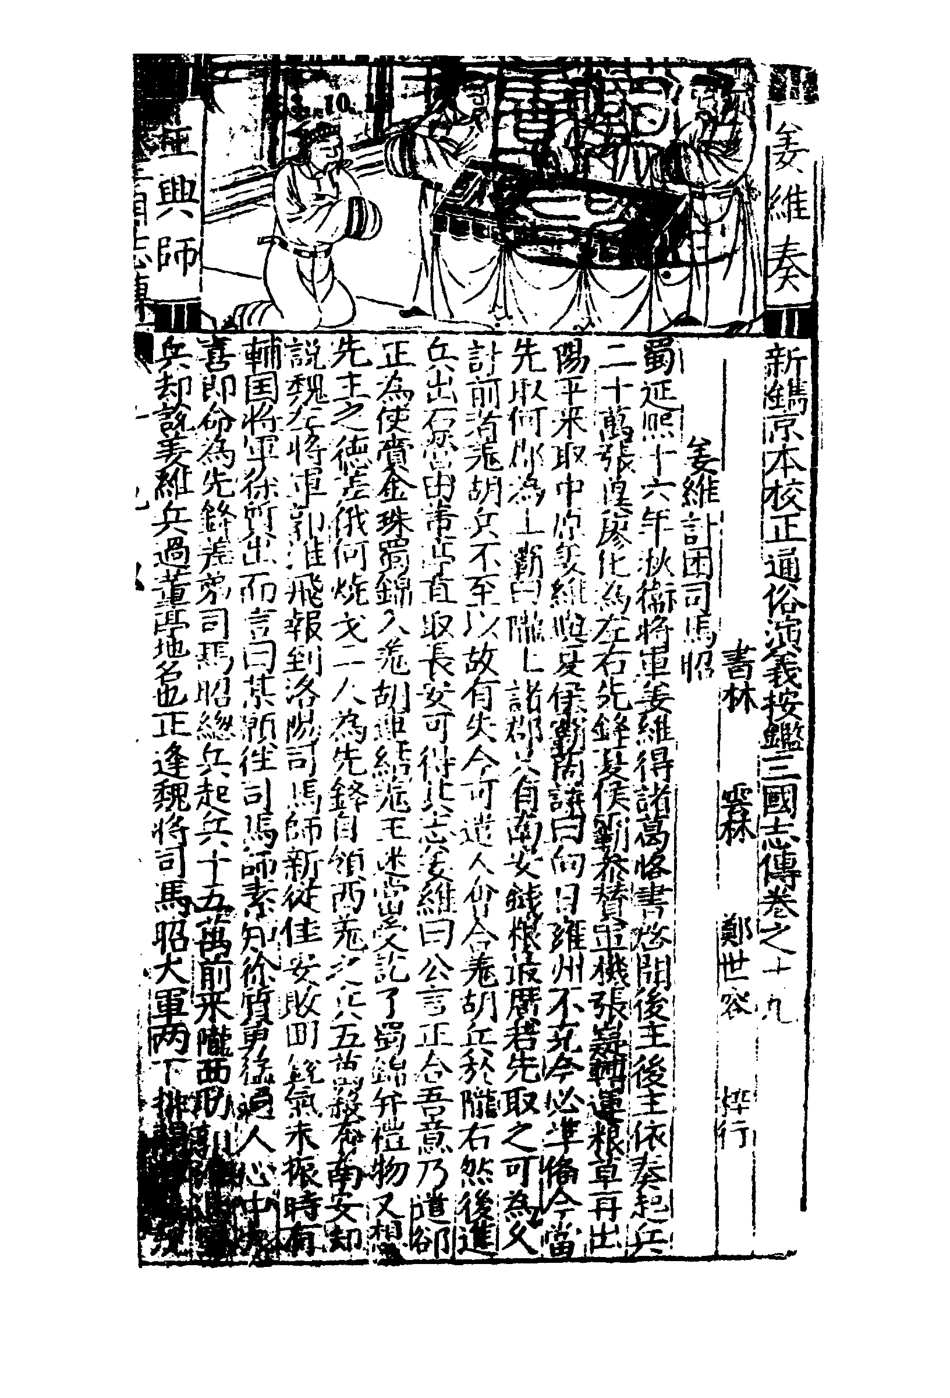 姜維奏
主興師
新鐫京本校正通俗演義按鑑三國志傳卷之十九
書林 雲林 鄭世容 梓行
姜維計困司馬昭
蜀延熙十六年秋衛將軍姜維得諸葛恪書啓聞後主後主依奏起兵
二十萬張翼廖化為左右先鋒夏侯霸參贊軍機張嶷轉運粮草再出
陽平來取中原姜維與夏侯霸商議曰向日雍州不克今必準俻今當
先取何郡為上霸曰隴上諸郡只有南安錢粮最廣若先取之可為久
計前者羗胡兵不至以故有失今可遣人仰合羗胡兵於隴右然後進
兵出石營由董亭直取長安可得此志姜維曰公言正合吾意乃遣郤
正為使賫金珠蜀錦入羗胡連結羗王迷當受訖了蜀錦并禮物又想
先主之德差俄何燒戈二人為先鋒自領西羗之兵五萬殺奔南安却
說魏左將軍郭淮飛報到洛陽司馬師新從佳安敗回銳氣未振時有
輔国將軍徐質出而言曰某願徃司馬師素知徐質勇猛過人心中
喜即命為先鋒差弟司馬昭總兵起兵十五萬前来隴西
兵却說姜維兵過董亭地名也正逢魏將司馬昭大軍两下